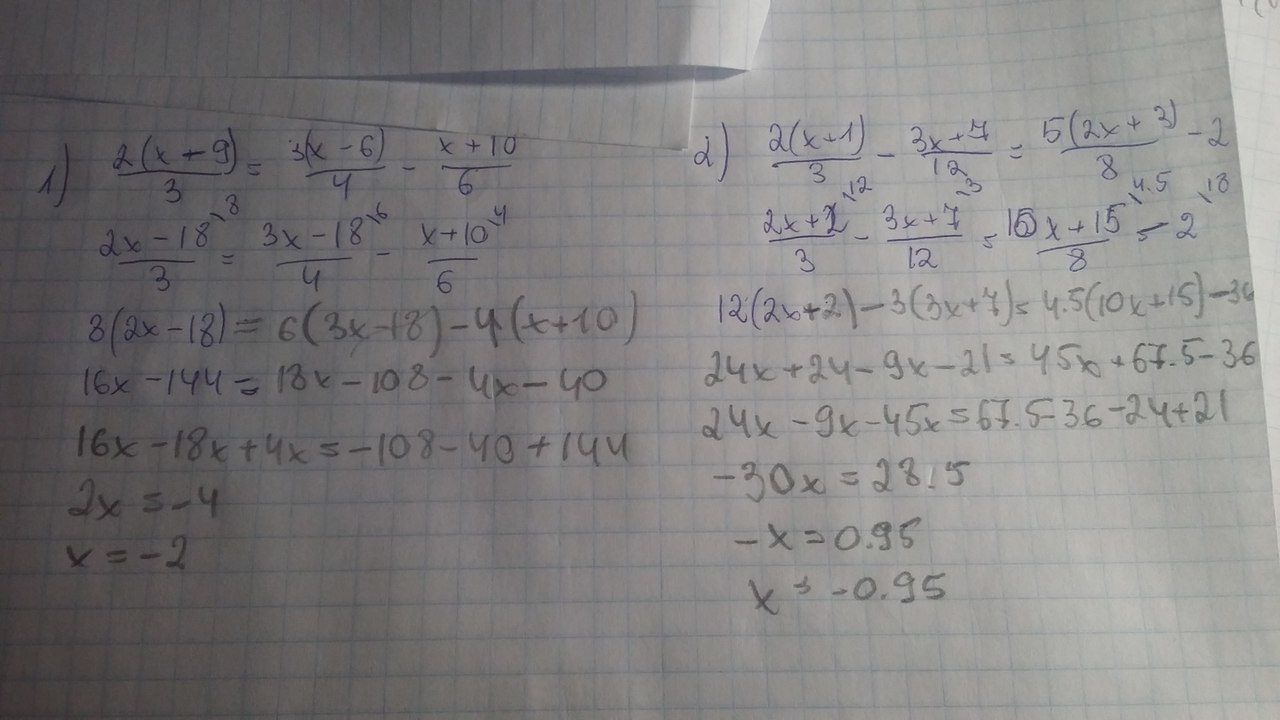 1) 2(x+9)/3 = 3(x-6)/4 - x+10/6
2x-18/3 \8 = 3x-18/4 \6 - x+10/6 \4
8(2x-18) = 6(3x-18)-4(x+10)
16x-144 = 18x-108-4x-40
16x-18x+4x=-108-40+144
2x=-4
x=-2
2) 2(x+1)/3 - 3x+7/12 = 5(2x+3)/8 - 2
2x+2/3 \12 - 3x+7/12 \3 = 10x+15/8 \4.5 - 2 \18
12(2x+2)-3(3x+7)=4.5(10x+15)-36
24x+24-9x-21=45x+67.5-36
24x-9x-45x=67.5-36-24+21
-30x=28.5
-x=0.95
x=-0.95